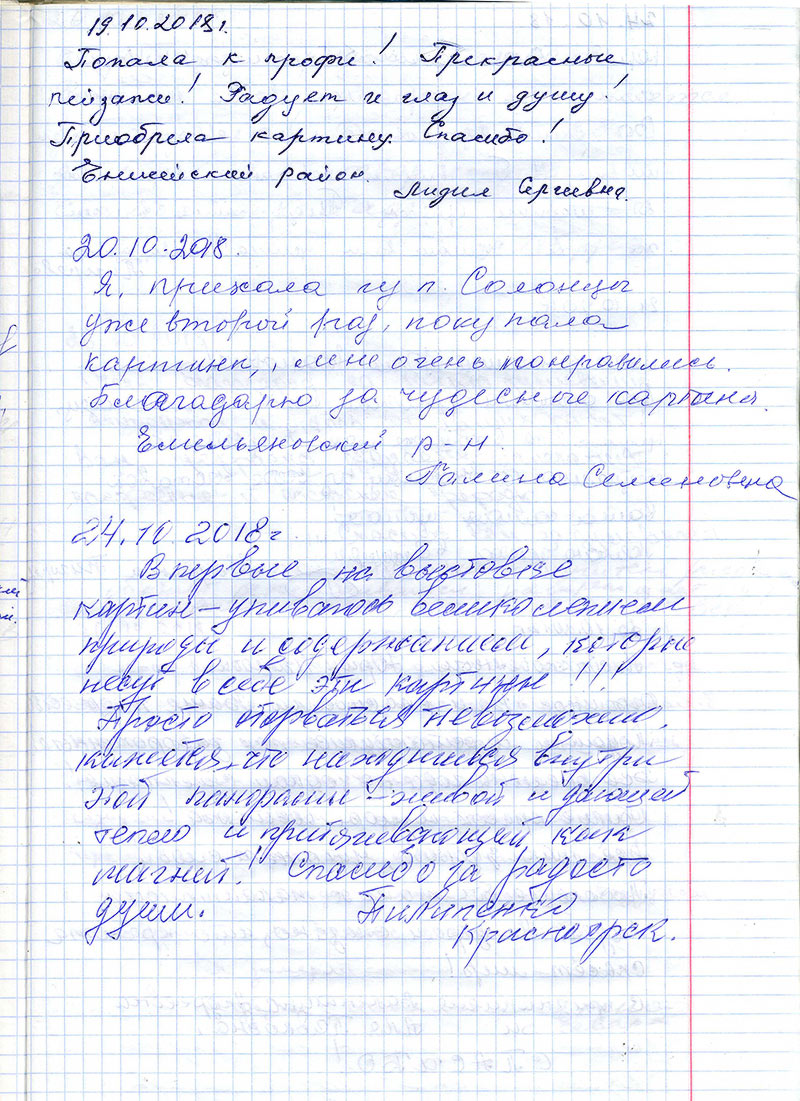 19.10.2018г.
Попала к профи! Прекрасные
пейзажи! Радует и глаз и душу!
Приобрела картину. Спасибо!
Енисейский район.
Лидия Сергиевна.
20.10.2018.
Я, приехала из п. Солонцы
уже второй раз, покупала
картинк, , мне очень понравились.
Благадарю за чудесные картины.
Емельяновский р-н.
Галина Семеновна
24.10.2018г
Впервые на выставке
картин – упиваюсь великолепием
природы и содержанием, которые
несут в себе эти картины!!!
Просто оторваться невозможно,
кажется, что находишься внутри
этой панорамы – живой и дающей
тепло и притягивающей как
магнит! Спасибо за радость
души.
Пилипенко
Красноярск.